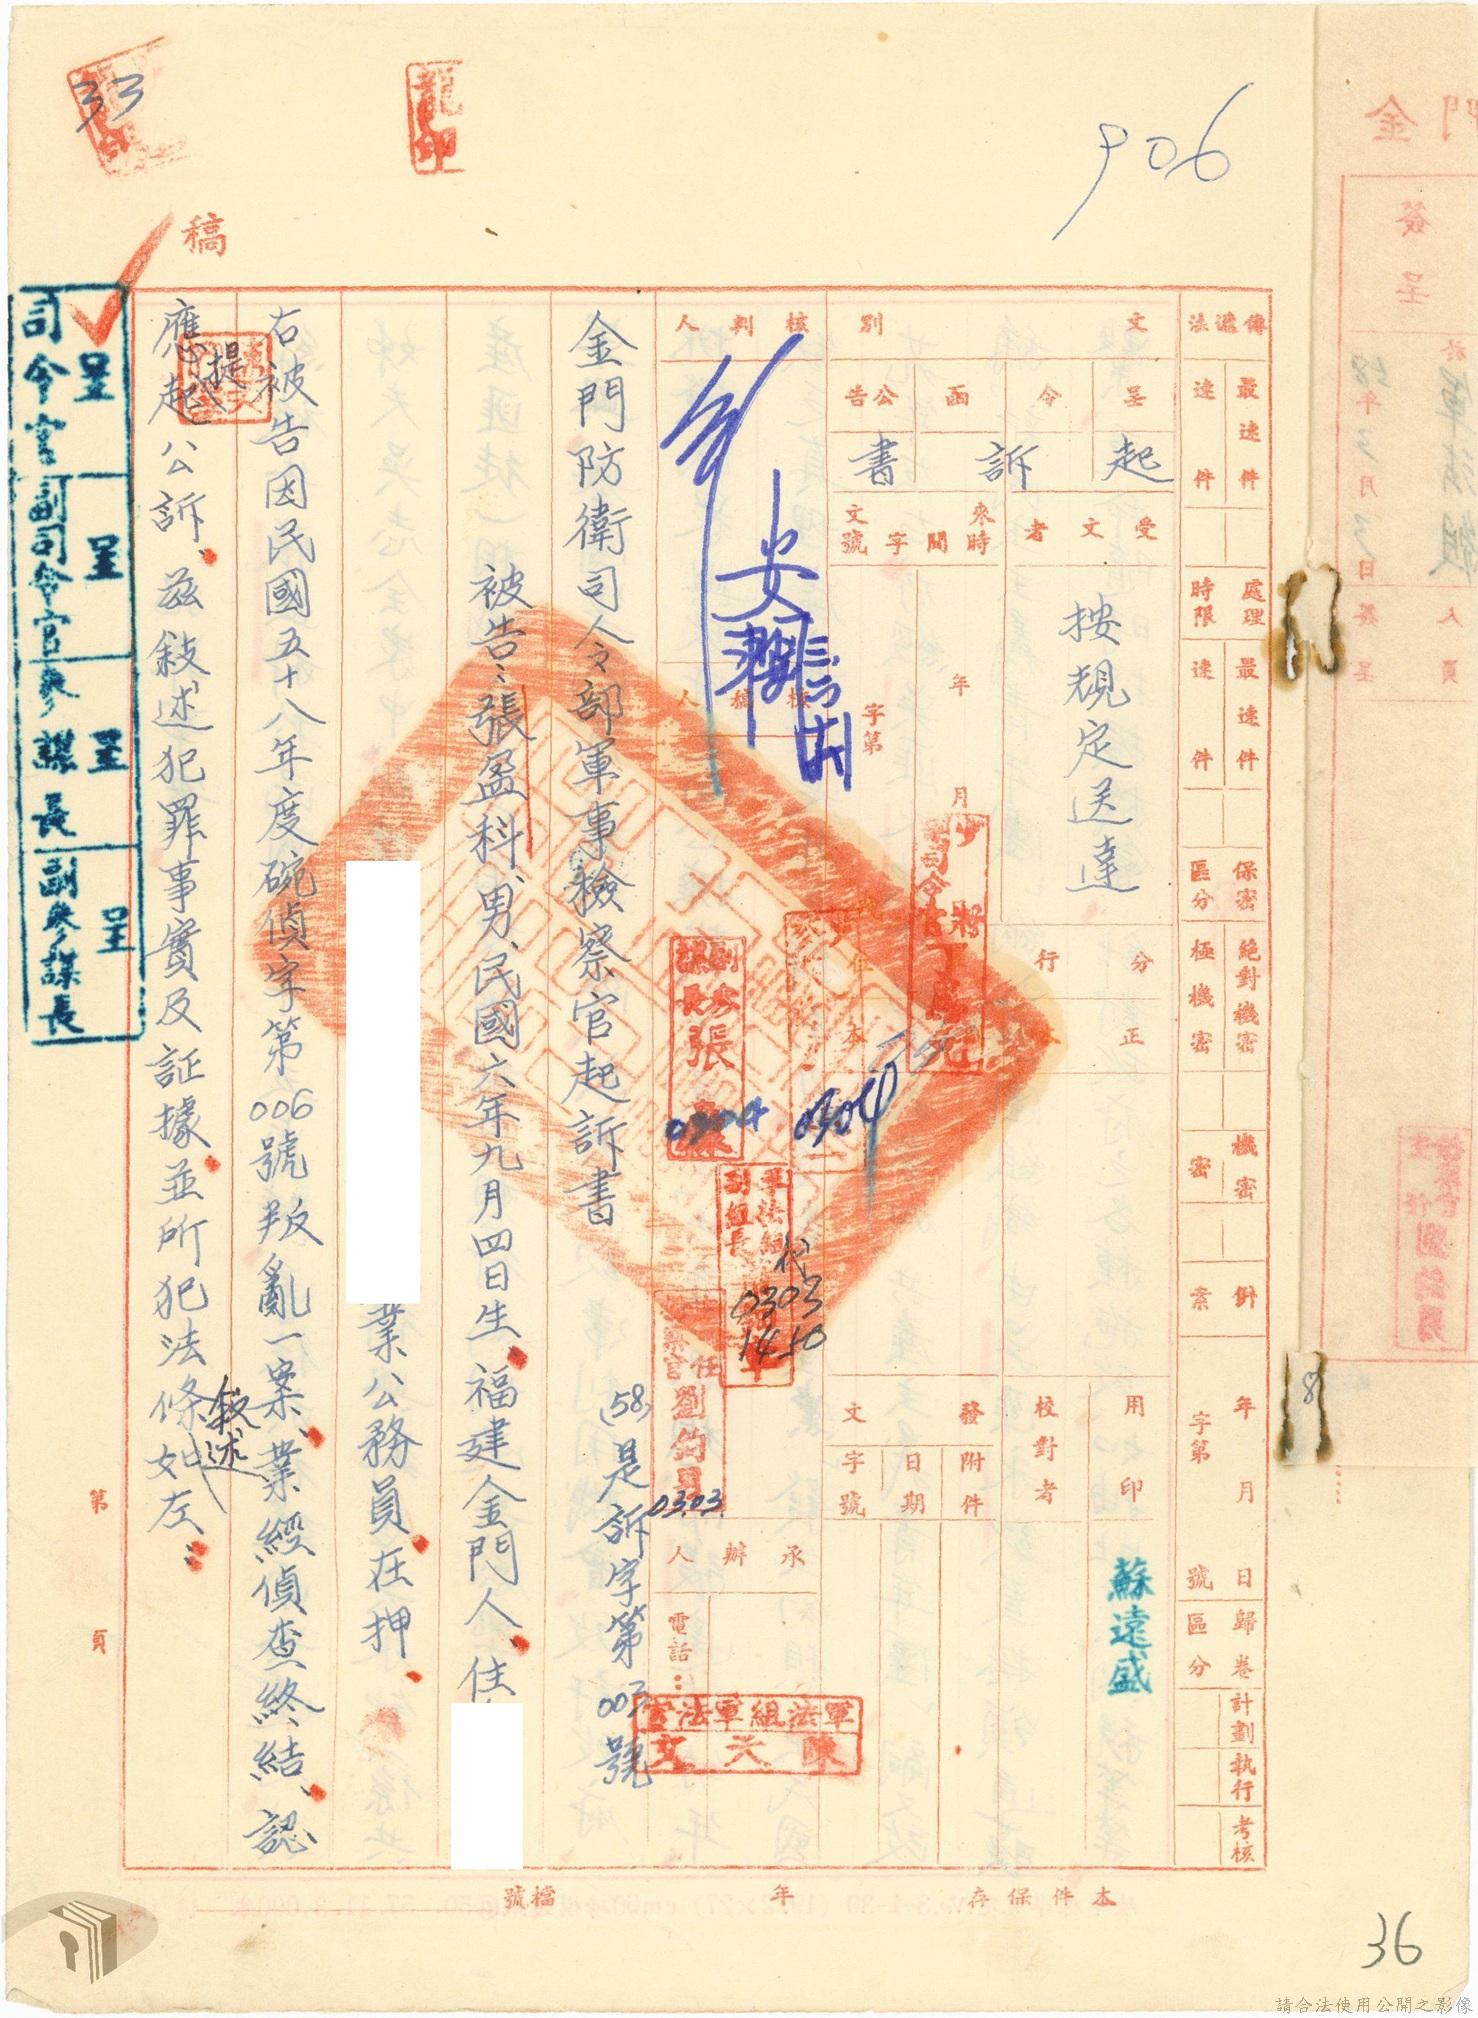 906
33
稿
傳遞法
最速件
速件
處理時限
最速件
速件
保密區分
絕對機密
極機密
機密
密
併案
年 月 日
字第 號
歸卷區分
計劃
執行
考核
文別
呈
令
函
公告
起訴書
受文者
按規定送達
來文時間字號
年 月
字第
分行
正
本
用印
蘇遠盛
校對者
發文
附件
日期
字號
核判人
核稿人
承辦人
電話：
軍法組軍法官
陳天文
副參謀長張
0304
0304
軍法組副組長
代
0303
1450
劉鈞男
03.03.
金門防衛司令部軍事檢察官起訴書
(58)是訴字第003號
被告：張盈科、男、民國六年九月四日生、福建金門人、住
業公務員在押、
右被告因民國五十八年度碗偵字第006號叛亂一案、業經偵查終結、認
應提起公訴、茲敍述犯罪事實及証據並所犯法條敍述如左：
呈司令官
呈副司令官
呈參謀長
呈副參謀長
第 頁
本件保存 年
檔號
36
金門
簽呈
58年3月3日
於軍法組
簽呈
人員
8
請合法使用公開之影像